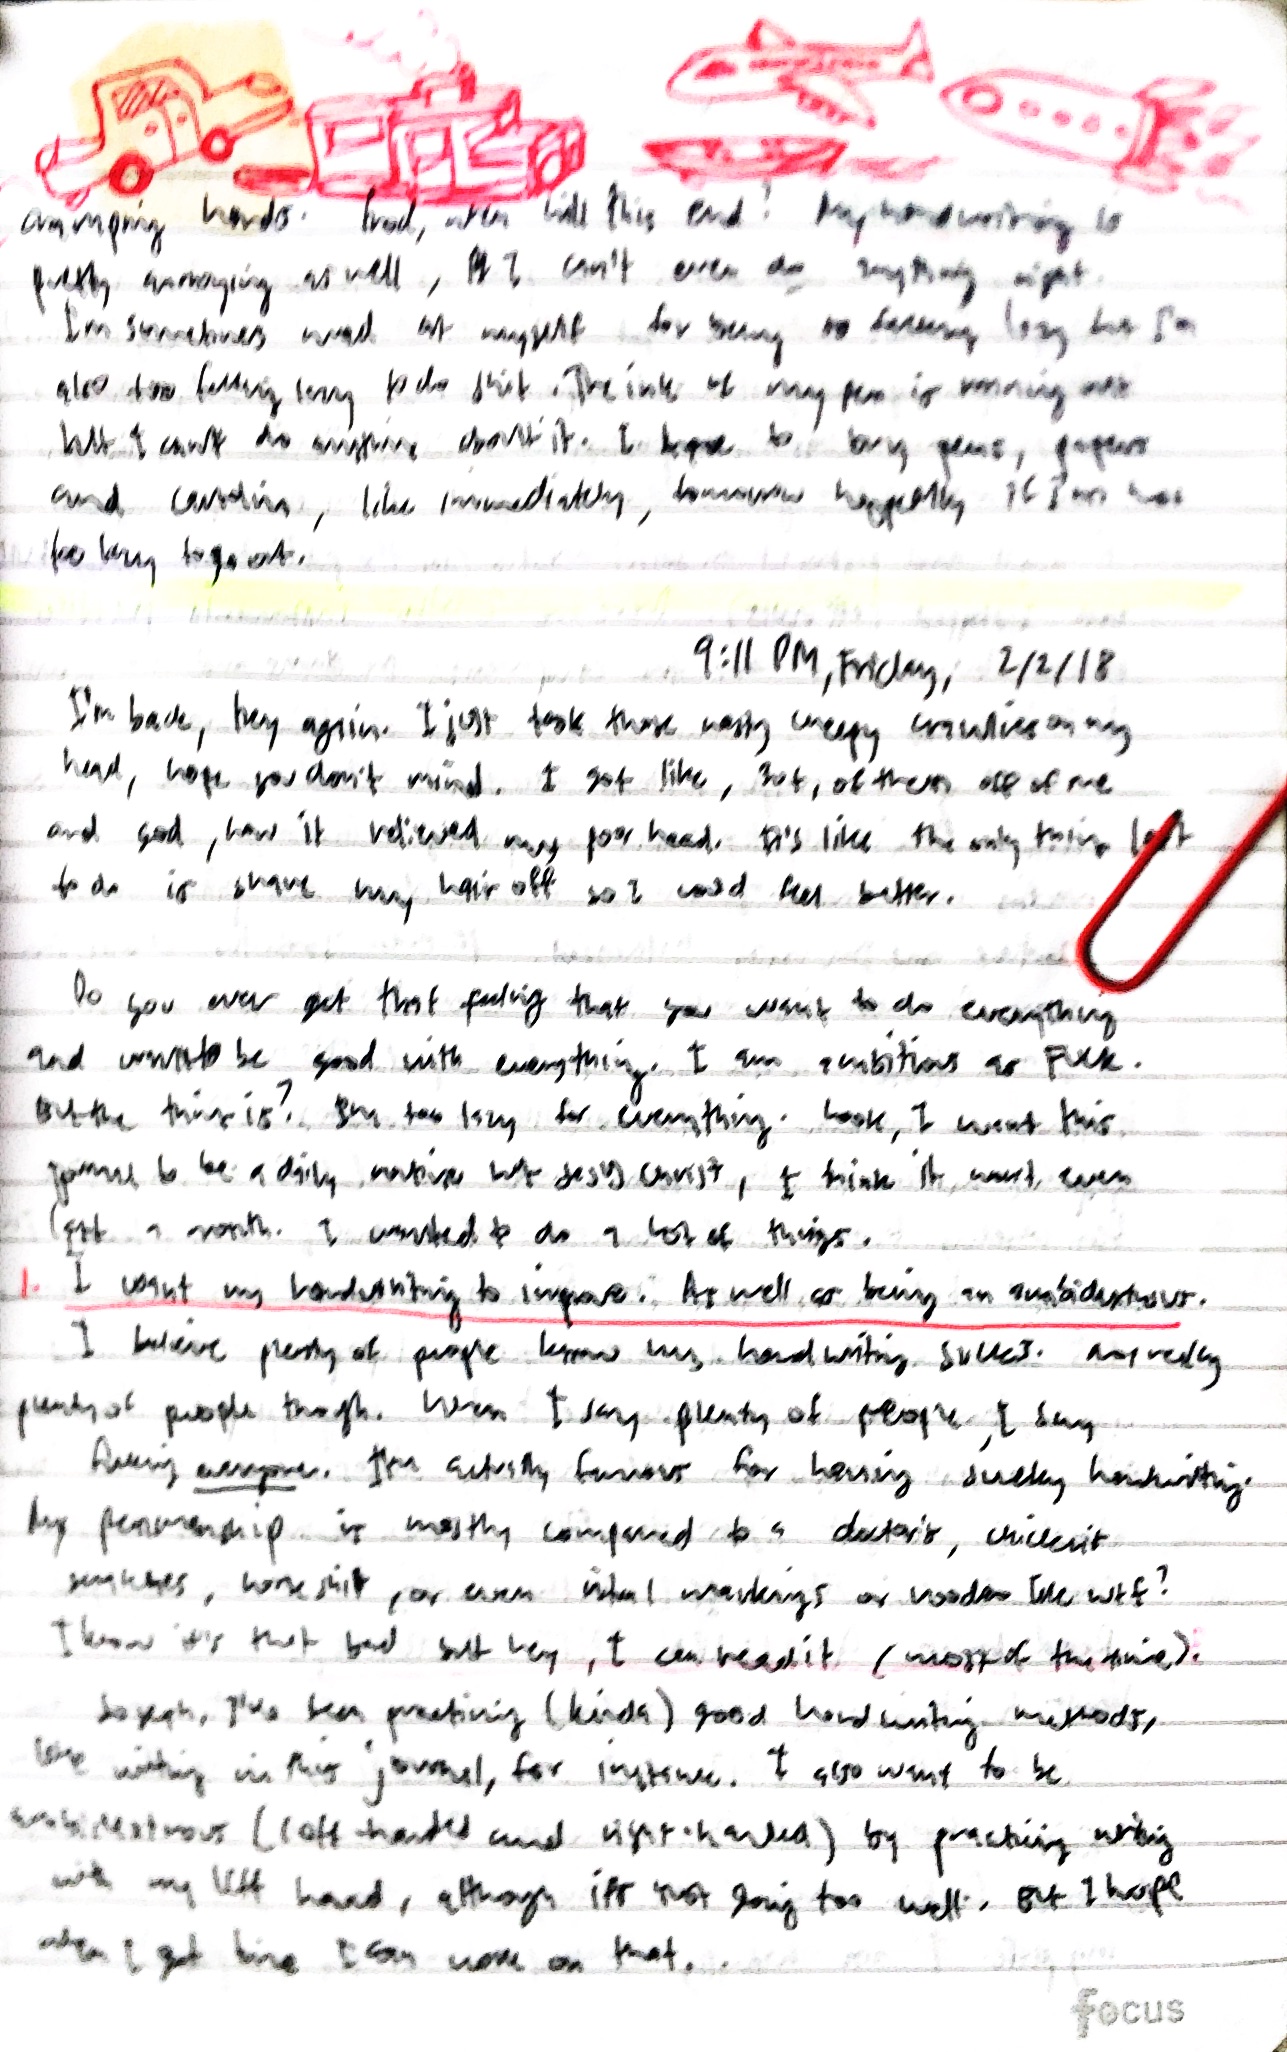 cramping hands. God, when will this end? My handwriting is
pretty annoying as well, I can't even do anything right.
I'm sometimes mad at myself for being so fucking lazy but I'm
also too fucking lazy to do shit. The ink of my pen is running out
but I can't do anything about it. I hope to buy pens, papers
and , like immediately, tomorrow hopefully if I'm not
too lazy to go out.
9:11 PM, Friday, 2/2/18
I'm back, hey again. I just took those nasty creepy crawlies on my
head, hope you don't mind. I got like, of them off of me
and god, how it relieved my poor head. It's like the only thing left
to do is shave my hair off so I could feel better.
Do you ever get that feeling that you want to do everything
and want to be good with everything. I am ambitious as FUCK.
But the thing is? I'm too lazy for everything. Look, I want this
journal to be a daily routine but JESUS CHRIST, I think it won't even
last a month. I wanted to do a lot of things.
1. I want my handwriting to improve. As well as being an ambidextrous.
I believe plenty of people know my handwriting sucks. Not really
plenty of people though. When I say plenty of people, I say
fucking everyone. I'm actually famous for having sucky handwriting.
My penmanship is mostly compared to a doctor's, chicken
scratches, horse shit, or even ritual markings or voodoo like wtf?
I know it's that bad but hey, I can read it (most of the time).
So yeah, I've been practicing (kinda) good handwriting methods,
like writing in this journal, for instance. I also want to be
ambidextrous (left-handed and right-handed) by practicing writing
with my left hand, although it's not going too well. But I hope
when I get time I can work on that.
focus